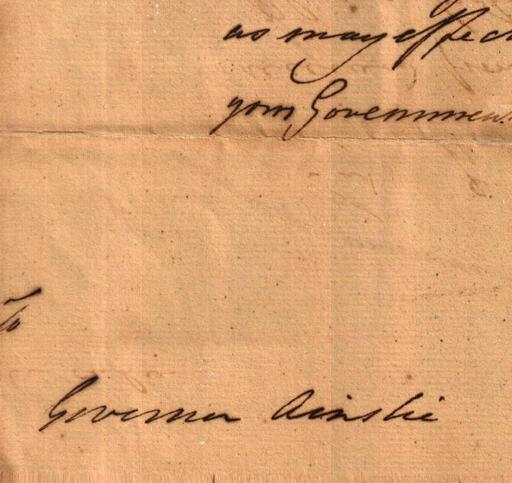 as may effect
your Government
To
Governor Ainslie